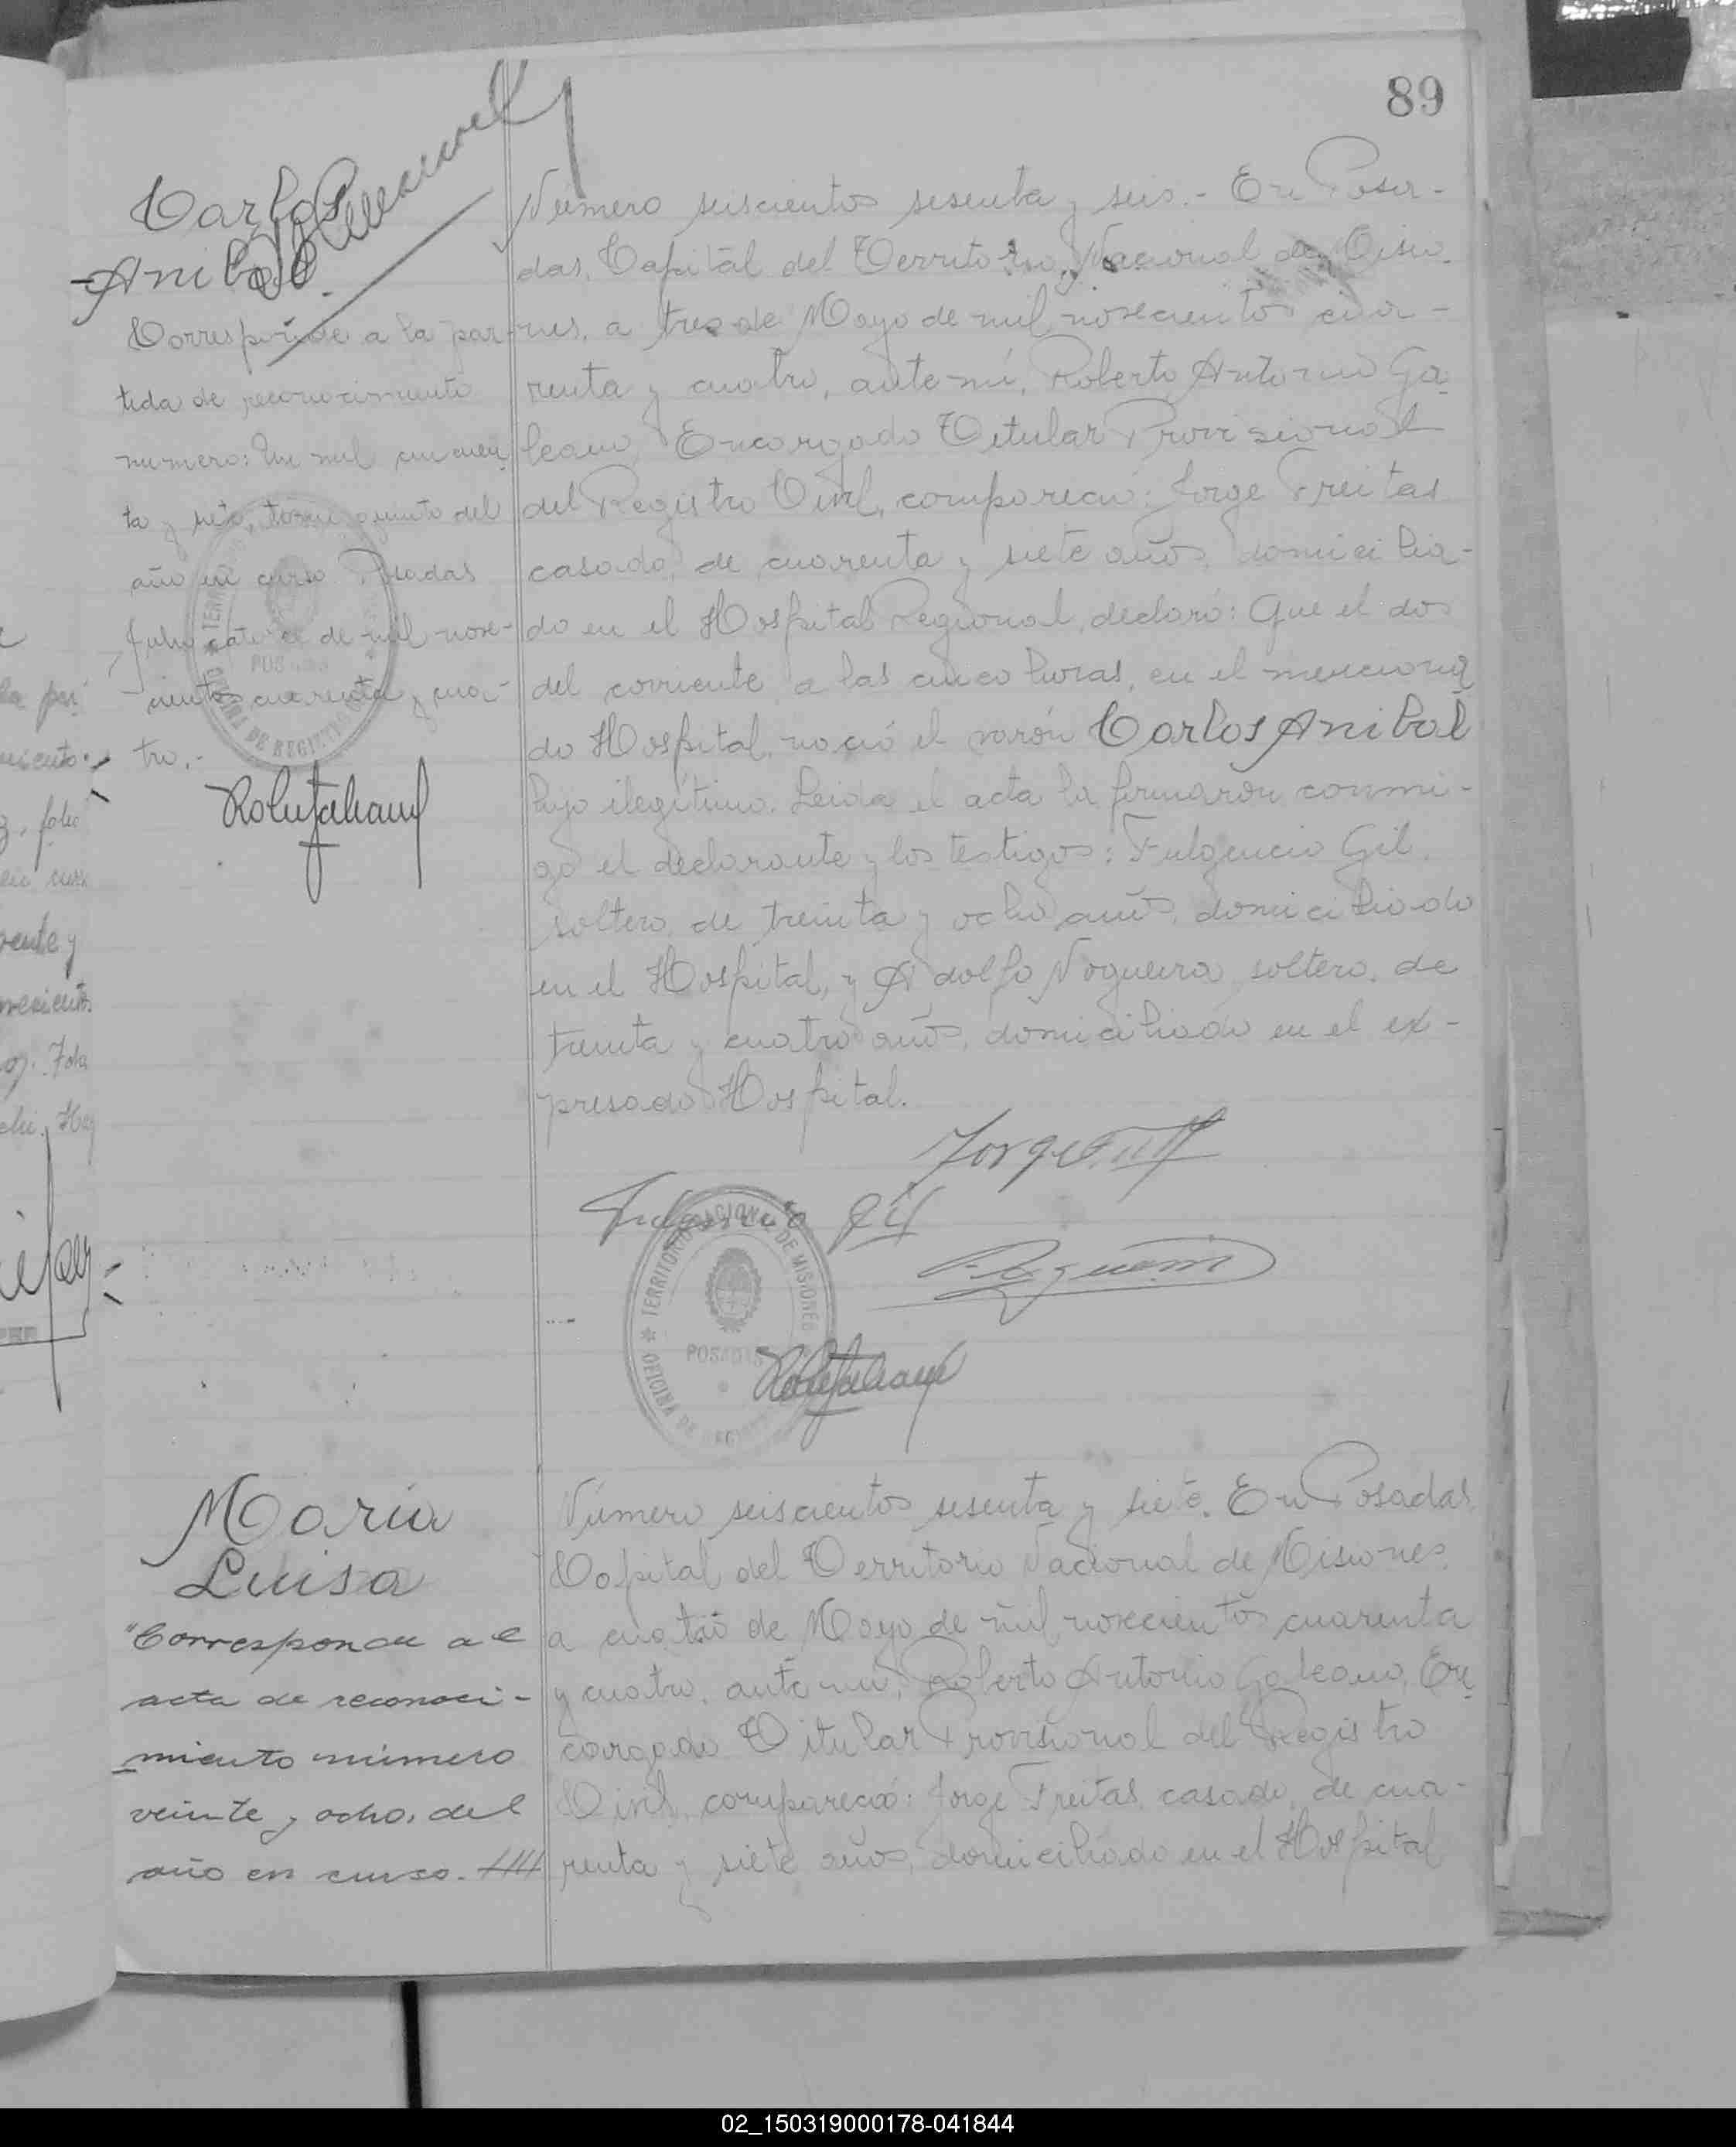 89
Carlos
Anibal.
Corresponde a la par-
tida de reconocimiento
numero: Un mil cincuen
ta y siete, tomo quinto del
año en curso. Posadas
Julio catorce de mil nove-
cientos cuarenta y cua-
tro.-
Número seiscientos sesenta y seis.- En Posa-
das, Capital del Territorio Nacional de Misio-
nes, a tres de Mayo de mil novecientos cua-
renta y cuatro, ante mí, Roberto Antonio Ga-
leano, Encargado Titular Provisional
del Registro Civil, compareció: Jorge Freitas
casado, de cuarenta y siete años, domicilia-
do en el Hospital Regional, declaró: Que el dos
del corriente a las cinco horas, en el menciona
do Hospital, nació el varón Carlos Anibal
hijo ilegítimo. Leida el acta la firmaron conmi-
go el declarante y los testigos: Fulgencio Gil,
soltero, de treinta y ocho años, domiciliado
en el Hospital, y Adolfo Nogueira, soltero, de
treinta y cuatro años, domiciliado en el ex-
presado Hospital.
Fulgencio Gil
TERRITORIO NACIONAL DE MISIONES
POSADAS
Maria
Luisa
"Corresponde al
acta de reconoci-
miento número
veinte y ocho, del
año en curso.
Número seiscientos sesenta y siete. En Posadas
Capital del Territorio Nacional de Misiones,
a cuatro de Mayo de mil novecientos cuarenta
y cuatro, ante mí, Roberto Antonio Galeano, En
cargado Titular Provisional del Registro
Civil, compareció: Jorge Freitas, casado, de cua-
renta y siete años, domiciliado en el Hospital
02_150319000178-041844